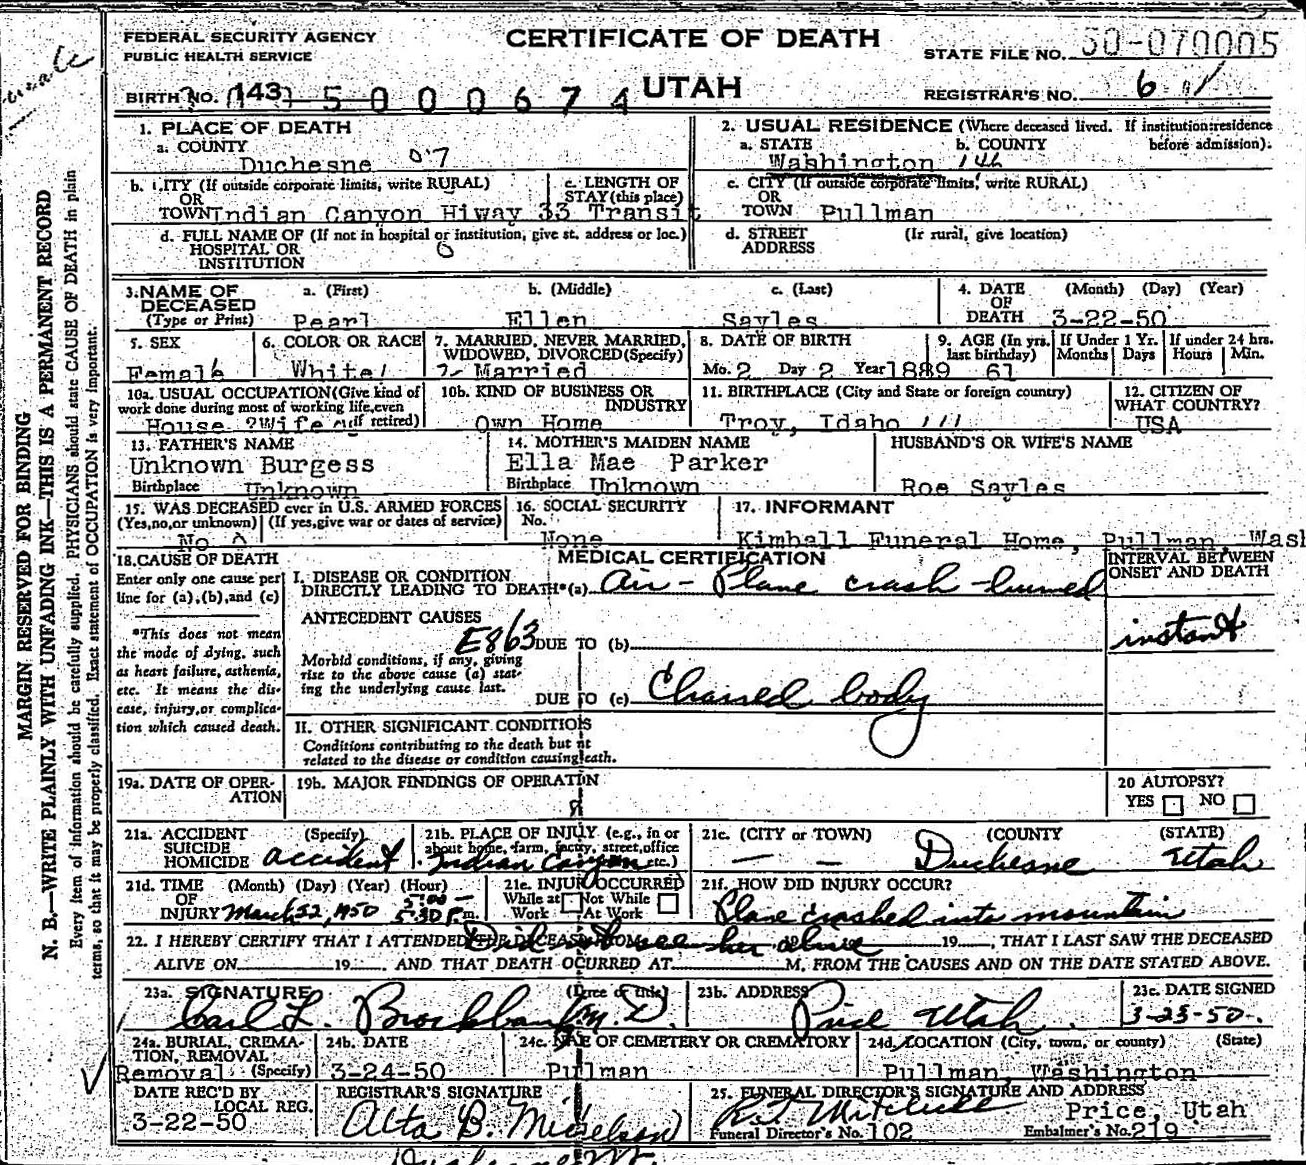 FEDERAL SECURITY AGENCY
PUBLIC HEALTH SERVICE
CERTIFICATE OF DEATH
UTAH
STATE FILE NO. 50-070005
BIRTH NO. 143 5 0 0 0 6 7 4
REGISTRAR'S NO. 6
MARGIN RESERVED FOR BINDING
N. B.—WRITE PLAINLY WITH UNFADING INK—THIS IS A PERMANENT RECORD
Every item of information should be carefully supplied. PHYSICIANS should state CAUSE OF DEATH in plain
terms, so that it may be properly classified. Exact statement of OCCUPATION is very important.
1. PLACE OF DEATH
a. COUNTY
Duchesne 07
2. USUAL RESIDENCE (Where deceased lived. If institution:residence before admission).
a. STATE b. COUNTY
Washington 146
b. CITY (If outside corporate limits, write RURAL)
OR
TOWN Indian Canyon Hiway 33
c. LENGTH OF
STAY (this place)
Transit
c. CITY (If outside corporate limits, write RURAL)
OR
TOWN Pullman
d. FULL NAME OF (If not in hospital or institution, give st. address or loc.)
HOSPITAL OR
INSTITUTION
0
d. STREET (If rural, give location)
ADDRESS
3. NAME OF DECEASED
(Type or Print)
a. (First) b. (Middle) c. (Last)
Pearl Ellen Sayles
4. DATE OF DEATH (Month) (Day) (Year)
3-22-50
5. SEX
Female
6. COLOR OR RACE
White
7. MARRIED, NEVER MARRIED,
WIDOWED, DIVORCED (Specify)
Married
8. DATE OF BIRTH
Mo. 2 Day 2 Year 1889
9. AGE (In yrs. last birthday)
61
If Under 1 Yr.
Months Days
If under 24 hrs.
Hours Min.
10a. USUAL OCCUPATION (Give kind of
work done during most of working life, even
House Wife if retired)
10b. KIND OF BUSINESS OR
INDUSTRY
Own Home
11. BIRTHPLACE (City and State or foreign country)
Troy, Idaho
12. CITIZEN OF
WHAT COUNTRY?
USA
13. FATHER'S NAME
Unknown Burgess
Birthplace Unknown
14. MOTHER'S MAIDEN NAME
Ella Mae Parker
Birthplace Unknown
HUSBAND'S OR WIFE'S NAME
Roe Sayles
15. WAS DECEASED ever in U.S. ARMED FORCES
(Yes, no, or unknown) (If yes, give war or dates of service)
No 0
16. SOCIAL SECURITY
No.
None
17. INFORMANT
Kimball Funeral Home, Pullman, Wash
18. CAUSE OF DEATH
Enter only one cause per
line for (a), (b), and (c)
*This does not mean
the mode of dying, such
as heart failure, asthenia,
etc. It means the dis-
ease, injury, or complica-
tion which caused death.
MEDICAL CERTIFICATION
INTERVAL BETWEEN
ONSET AND DEATH
I. DISEASE OR CONDITION
DIRECTLY LEADING TO DEATH*(a) Air-Plane crash burned
instant
ANTECEDENT CAUSES
E863 DUE TO (b)
Morbid conditions, if any, giving
rise to the above cause (a) stat-
ing the underlying cause last.
DUE TO (c) Charred body
II. OTHER SIGNIFICANT CONDITIOS
Conditions contributing to the death but nt
related to the disease or condition causing eath.
19a. DATE OF OPER-
ATION
19b. MAJOR FINDINGS OF OPERATIN
20 AUTOPSY?
YES NO
21a. ACCIDENT (Specify)
SUICIDE
HOMICIDE accident
21b. PLACE OF INJUY (e.g., in or
about home, farm, facty, street, office
Indian Canyon etc.)
21c. (CITY or TOWN) (COUNTY (STATE)
— — Duchesne Utah
21d. TIME (Month) (Day) (Year) (Hour)
OF 5:00 —
INJURY March 22, 1950 5:30 P.m.
21e. INJUR OCCURRED
While at Work Not While At Work
21f. HOW DID INJURY OCCUR?
Plane crashed into mountain
22. I HEREBY CERTIFY THAT I ATTENDED THE DECEASED FROM Did not see her alive 19, THAT I LAST SAW THE DECEASED
ALIVE ON 19, AND THAT DEATH OCURRED AT M. FROM THE CAUSES AND ON THE DATE STATED ABOVE.
23a. SIGNATURE (Dgree or title)
Carl L. Brockbank M.D.
23b. ADDRESS
Price Utah
23c. DATE SIGNED
3-23-50
24a. BURIAL, CREMA-
TION, REMOVAL
Removal (Specify)
24b. DATE
3-24-50
24c. NAE OF CEMETERY OR CREMATORY
Pullman
24d. LOCATION (City, town, or county) (State)
Pullman, Washington
DATE REC'D BY
LOCAL REG.
3-22-50
REGISTRAR'S SIGNATURE
Alta B.
25. FUNERAL DIRECTOR'S SIGNATURE AND ADDRESS
Price, Utah
Funeral Director's No. 102 Embalmer's No. 219